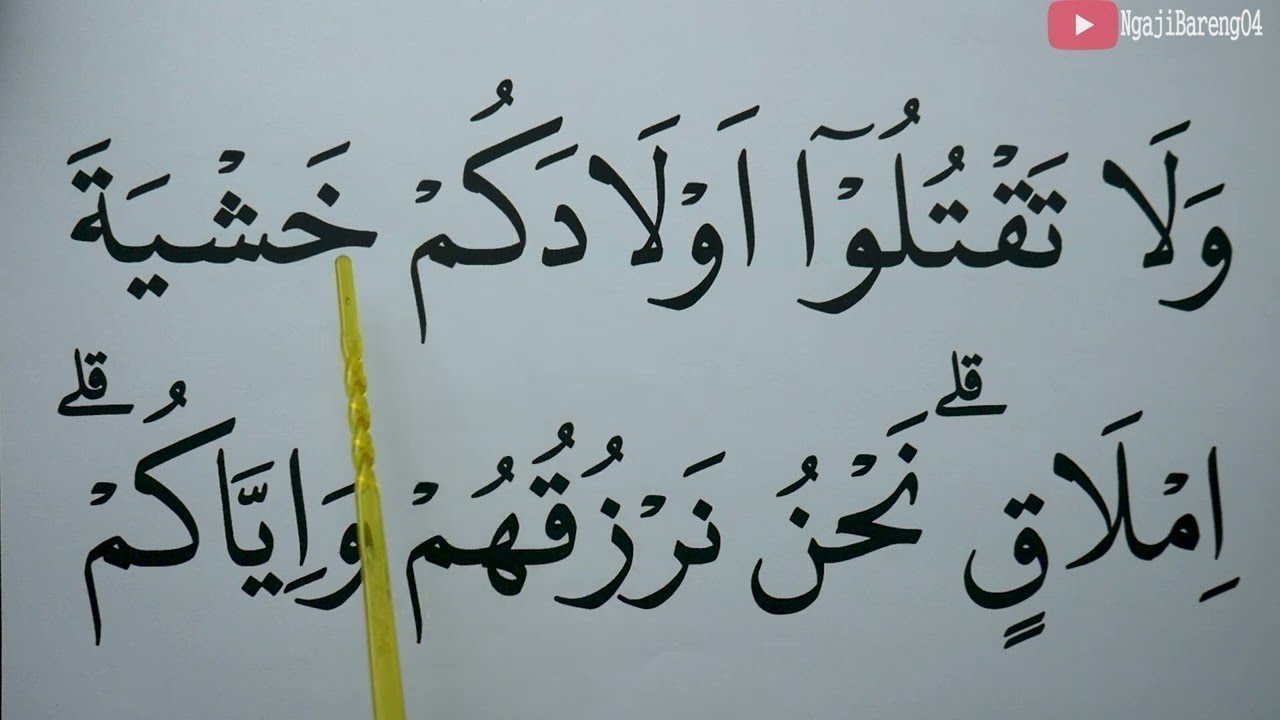 NgajiBareng04
وَلَا تَقْتُلُوْٓا اَوْلَادَكُمْ خَشْيَةَ
اِمْلَاقٍۗ نَحْنُ نَرْزُقُهُمْ وَاِيَّاكُمْۗ